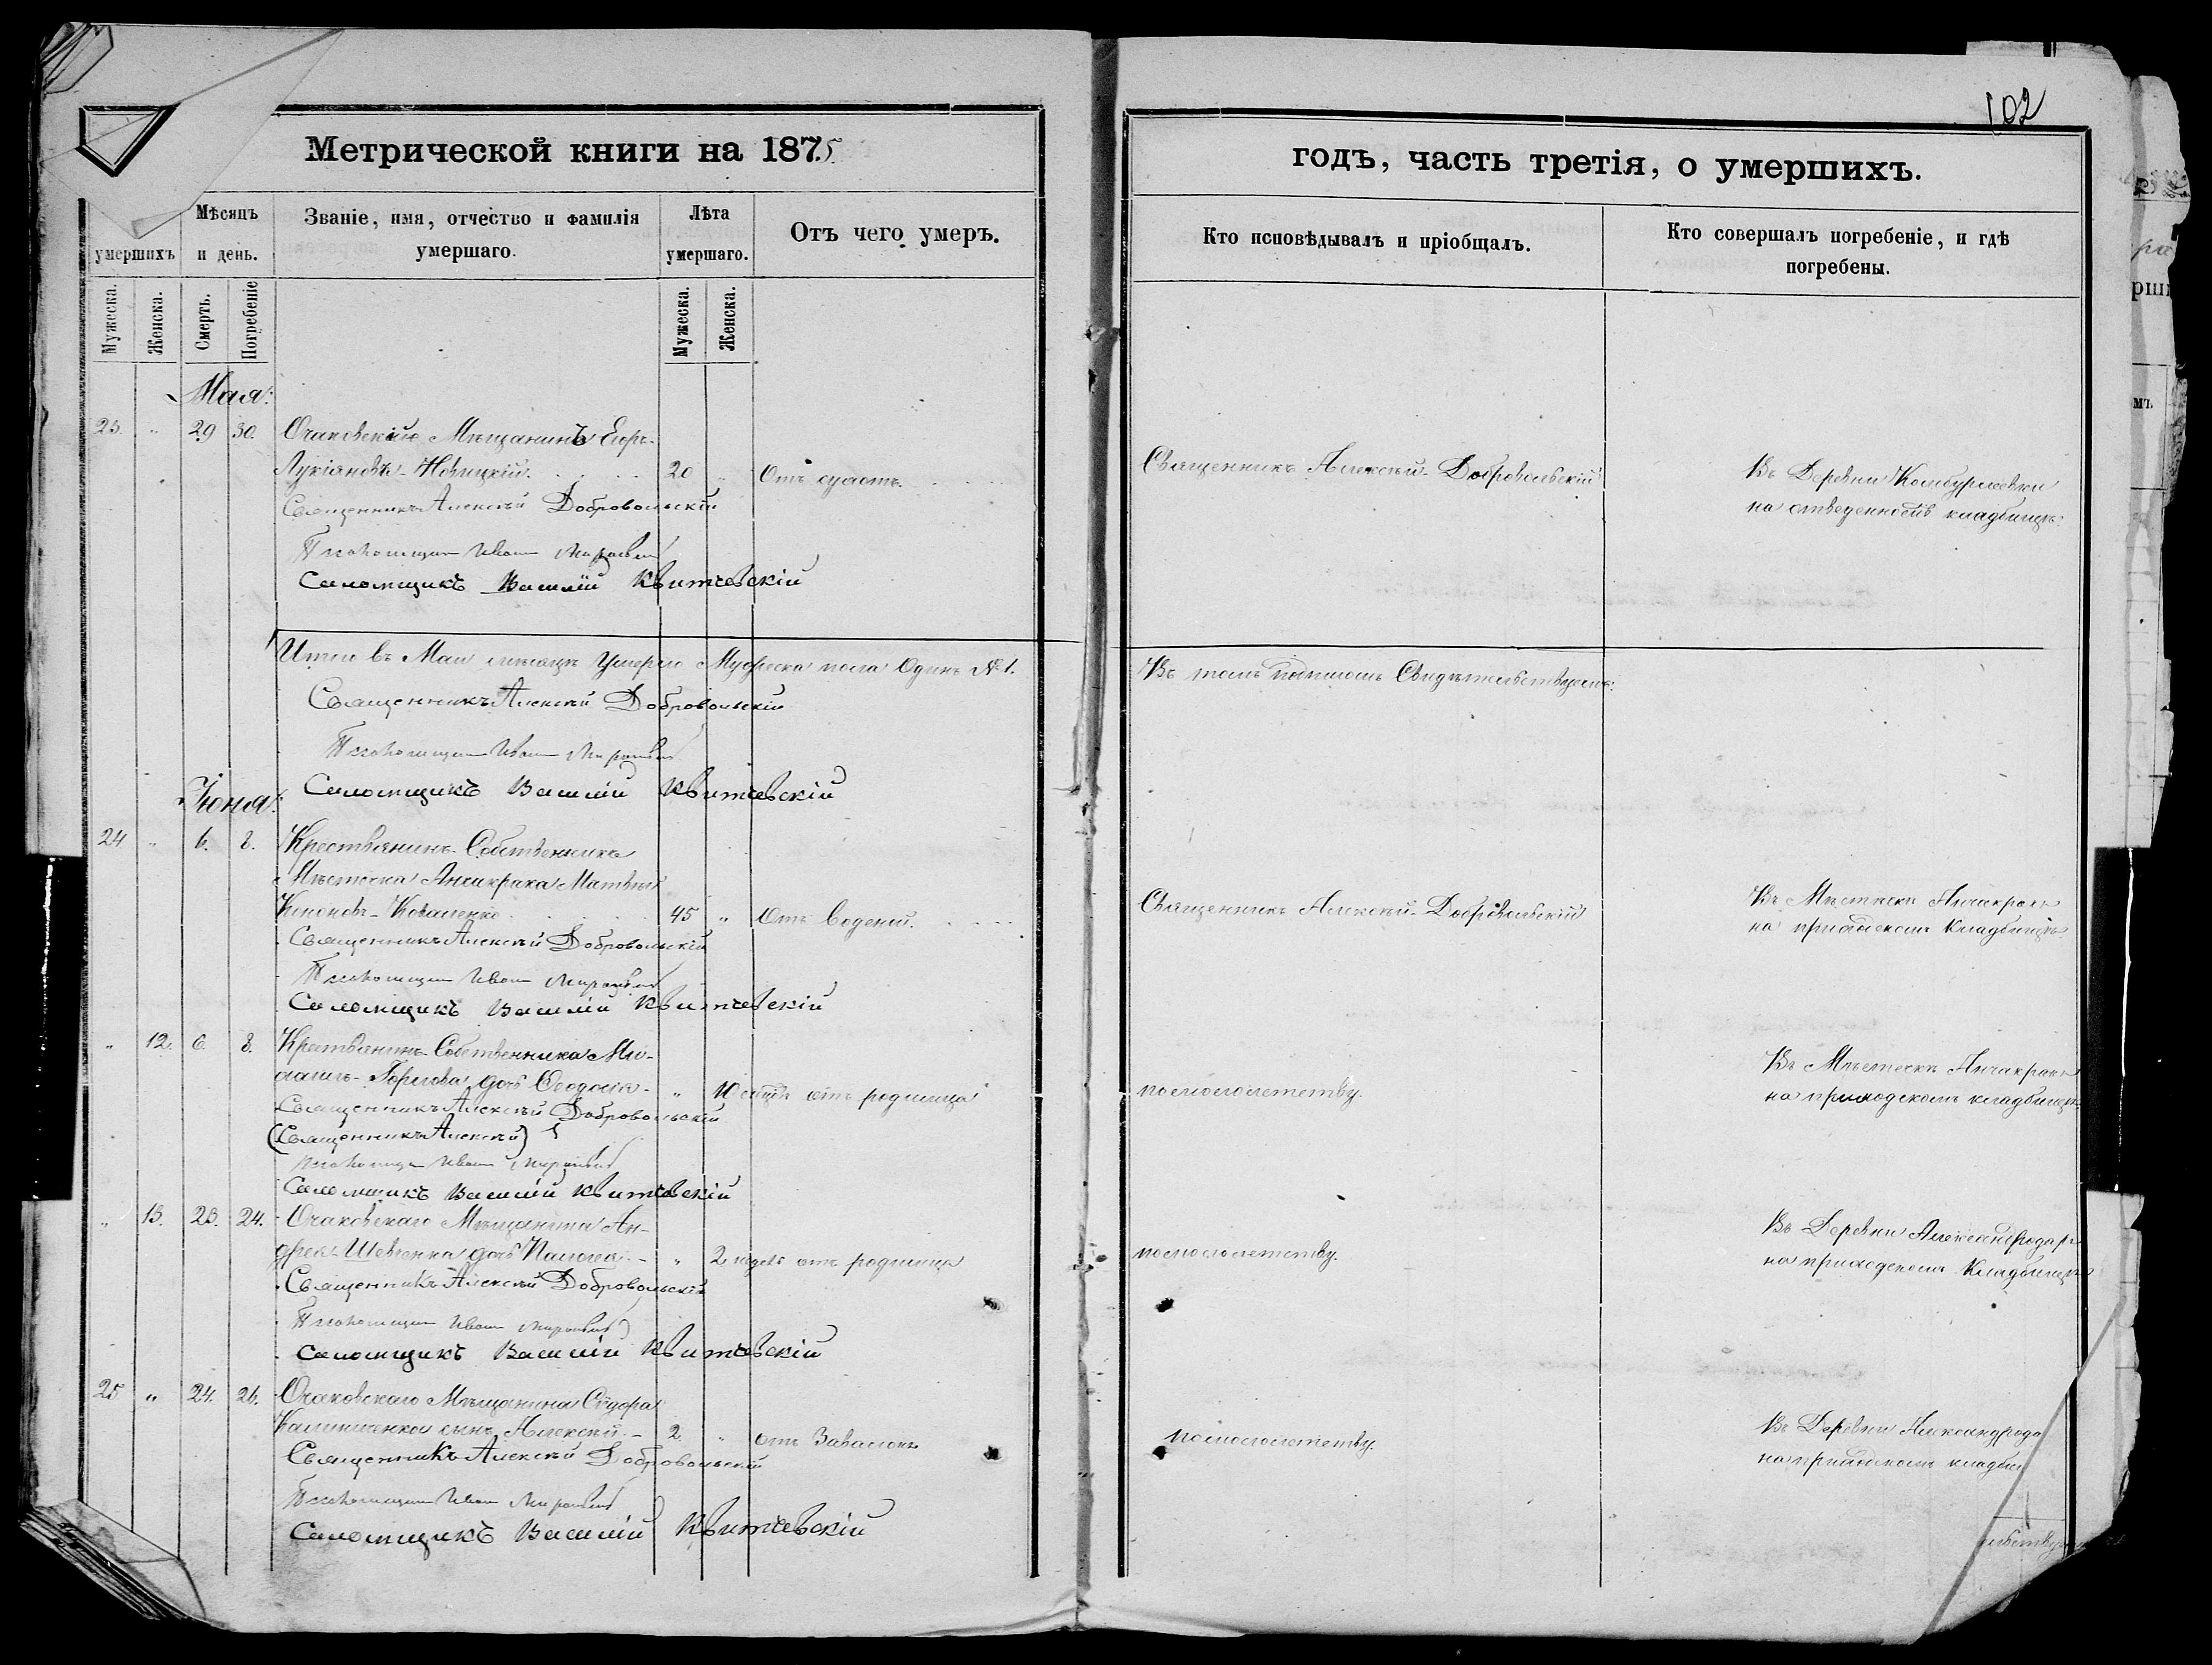 102
Метрической книги на 1875
годъ, часть третія, о умершихъ.
умершихъ
Мѣсяцъ и день.
Званіе, имя, отчество и фамилія умершаго.
Лѣта умершаго.
Отъ чего умеръ.
Кто исповѣдывалъ и пріобщалъ.
Кто совершалъ погребеніе, и гдѣ погребены.
Мужеска.
Женска.
Смерть.
Погребеніе
Мужеска.
Женска.
Мая:
23. " 29 30. Очаковскій Мѣщанинъ
Лукіановъ - Новицкій. 20 " Отъ Священникъ Алексѣй Добровольскій Въ Деревни
Священникъ Алексѣй Добровольскій на кладбищѣ.
Иванъ
Псаломщикъ Василій Квитчевскій
Итого въ Маи мѣсяцѣ Умерло Мужеска пола Одинъ №1. Въ томъ Свидѣтельствуемъ:
Священникъ Алексѣй Добровольскій
Иванъ
Псаломщикъ Василій Квитчевскій
Іюня:
24 " 6. 8. Крестьянинъ Собственникъ
Мѣстечка Анчакрака Матвѣй
Коваленко 45 " Отъ водяной. Священникъ Алексѣй Добровольскій Въ Мѣстечкѣ Анчакракѣ
Священникъ Алексѣй Добровольскій на приходскомъ Кладбищѣ.
Иванъ
Псаломщикъ Василій Квитчевскій
" 12. 6. 8. Крестьянина Собственника
дочь Ѳеодосія - " отъ родимца по малолетству. Въ Мѣстечкѣ Анчакракѣ
Священникъ Алексѣй Добровольскій на приходскомъ кладбищѣ.
(Священникъ Алексѣй)
Иванъ
Псаломщикъ Василій Квитчевскій
" 13. 23. 24. Очаковскаго Мѣщанина Ан-
дрея Шевченка дочь Пелагея - " 2 недѣл отъ родимца по малолетству. Въ Деревни Александродарѣ
Священникъ Алексѣй Добровольскій на приходскомъ Кладбищѣ
Иванъ
Псаломщикъ Василій Квитчевскій
25 " 24. 26. Очаковскаго Мѣщанина Сидора
Калиниченка сынъ Алексѣй - 2 " отъ Завалокъ по малолетству. Въ Деревни Александрода
Священникъ Алексѣй Добровольскій на приходскомъ кладби
Иванъ
Псаломщикъ Василій Квитчевскій